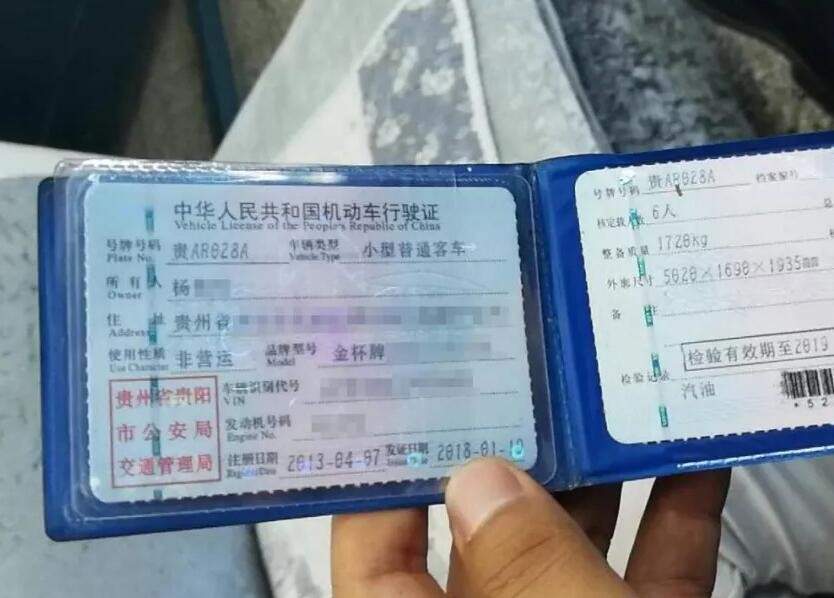 中华人民共和国机动车行驶证
Vehicle License of the People's Republic of China
号牌号码 贵AR028A 车辆类型 小型普通客车
Plate No. Vehicle Type
所有人 杨
Owner
住址 贵州省
Address
使用性质 非营运 品牌型号 金杯牌
Use Character Model
贵州省贵阳
市公安局
交通管理局
车辆识别代号
VIN
发动机号码
Engine No.
注册日期 2013-04-07 发证日期 2018-01-1
号牌号码 贵AR028A 档案编号
核定载人数 6人
整备质量 1728kg
外廓尺寸 5020×1690×1935mm
备注
检验有效期至2019
检验记录
汽油
*52